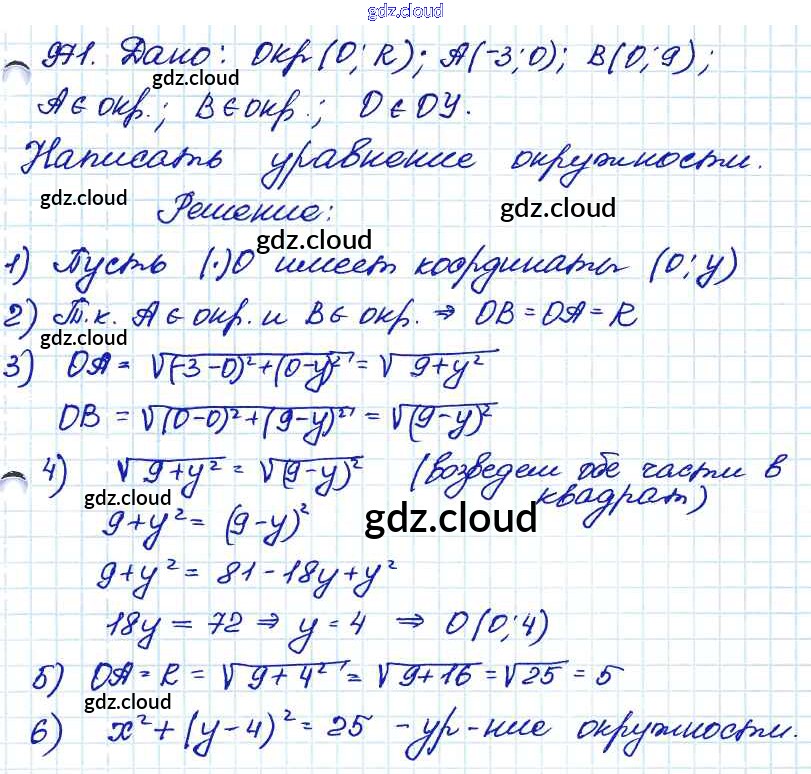 gdz.cloud
971. Дано: Окр(O; R); A(-3; 0); B(0; 9);
gdz.cloud
A ∈ окр.; B ∈ окр.; O ∈ OY.
Написать уравнение окружности.
gdz.cloud
Решение:
gdz.cloud
gdz.cloud
1) Пусть (·)O имеет координаты (0; y)
2) Т.к. A ∈ окр. и B ∈ окр. ⇒ OB = OA = R
gdz.cloud
3) OA = √(-3-0)²+(0-y)² = √9+y²
OB = √(0-0)²+(9-y)² = √(9-y)²
4) √9+y² = √(9-y)² (возведем обе части в
квадрат)
gdz.cloud
9+y² = (9-y)²
gdz.cloud
9+y² = 81-18y+y²
18y = 72 ⇒ y = 4 ⇒ O(0; 4)
5) OA = R = √9+4² = √9+16 = √25 = 5
gdz.cloud
6) x²+(y-4)² = 25 - ур-ние окружности.